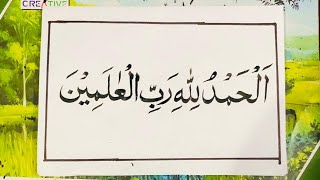 CREATIVE
اَلْحَمْدُ لِلّٰهِ رَبِّ الْعٰلَمِيْنَ